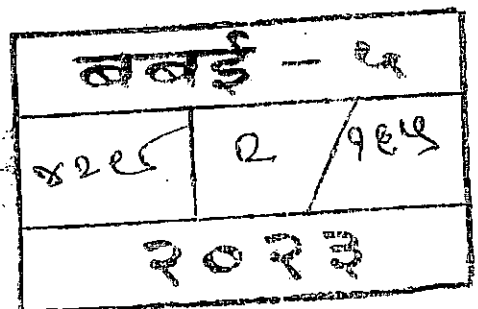 बबई - ५
४२९ २ / १६५
२०२३